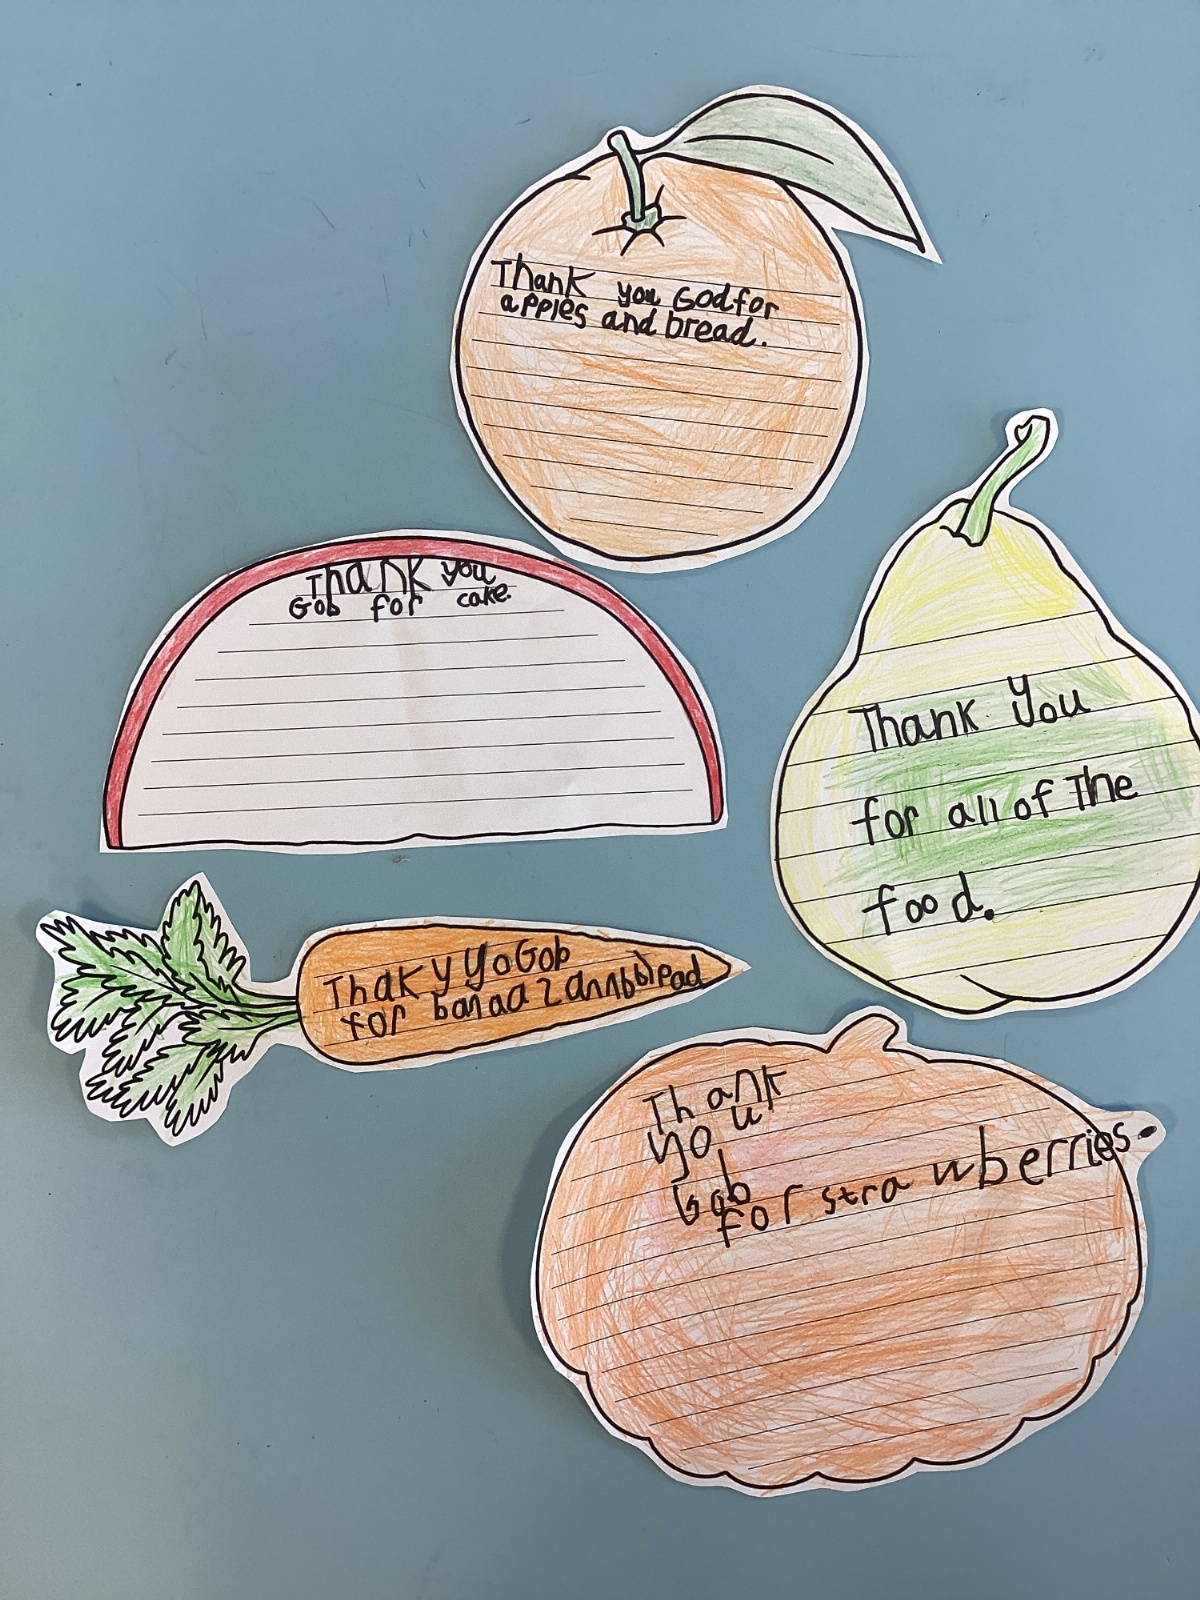 Thank you God for
apples and bread.
Thank you
Gob for cake.
Thank you
for all of The
food.
Thak y yo Gob
for banaaz annbblead
Thank
you
Gob
for strawberries.